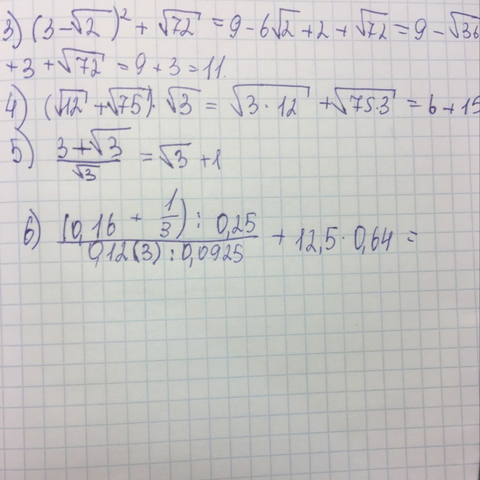 3) (3-√2)² + √72 = 9 - 6√2 + 2 + √72 = 9 - √36
+3 + √72 = 9 + 3 = 11.
4) (√12 + √75) · √3 = √3·12 + √75·3 = 6 + 15
5) 3+√3/√3 = √3 + 1
6) (0,16 + 1/3) : 0,25 / 0,12(3) : 0,0925 + 12,5 · 0,64 =